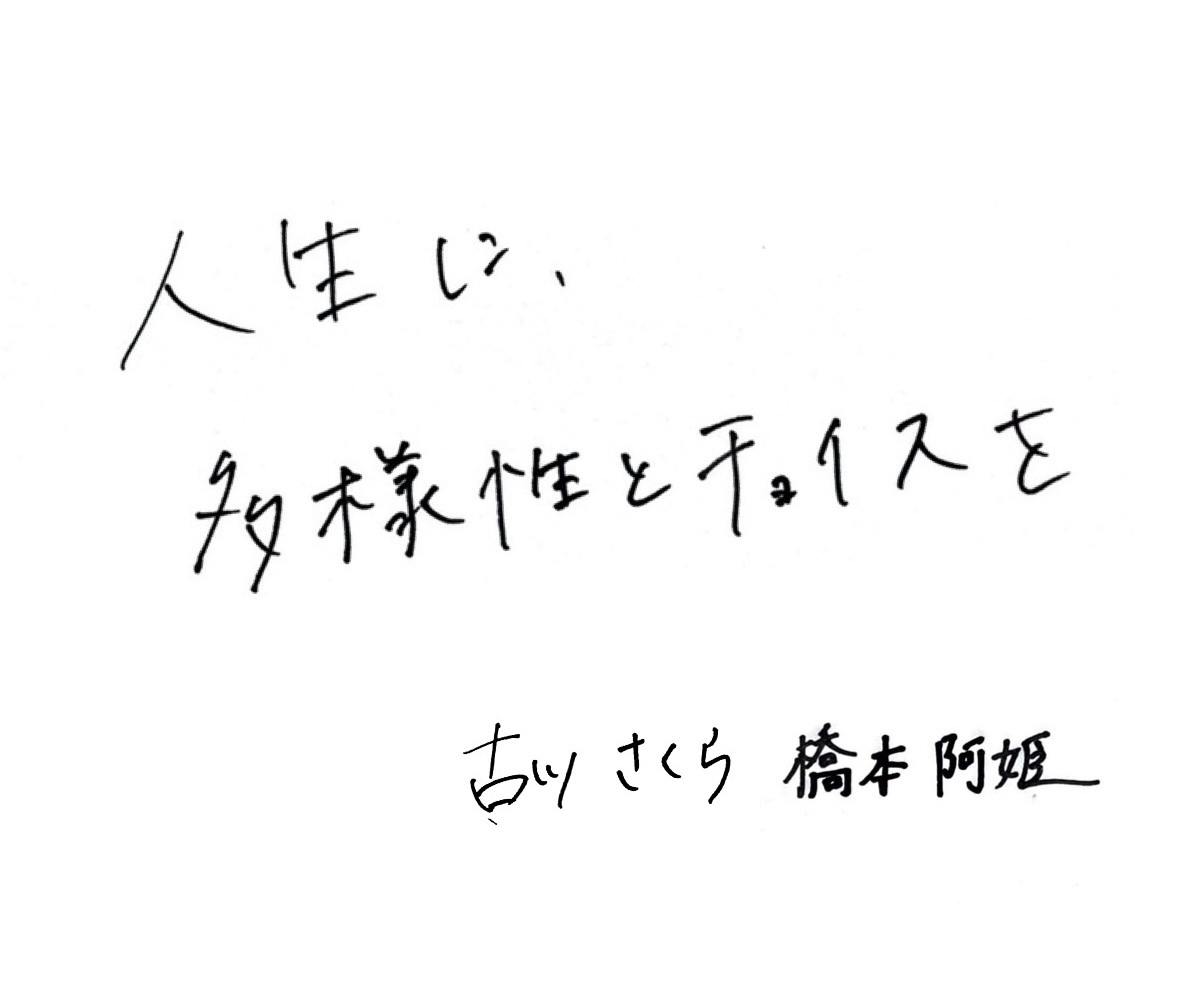 人生に、
多様性とチョイスを
古川 さくら 橋本 阿姫